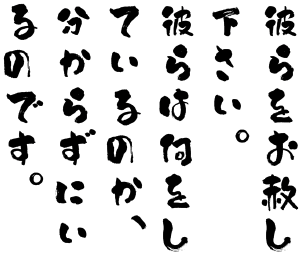 彼らをお赦し
下さい。
彼らは何をし
ているのか、
分からずにい
るのです。